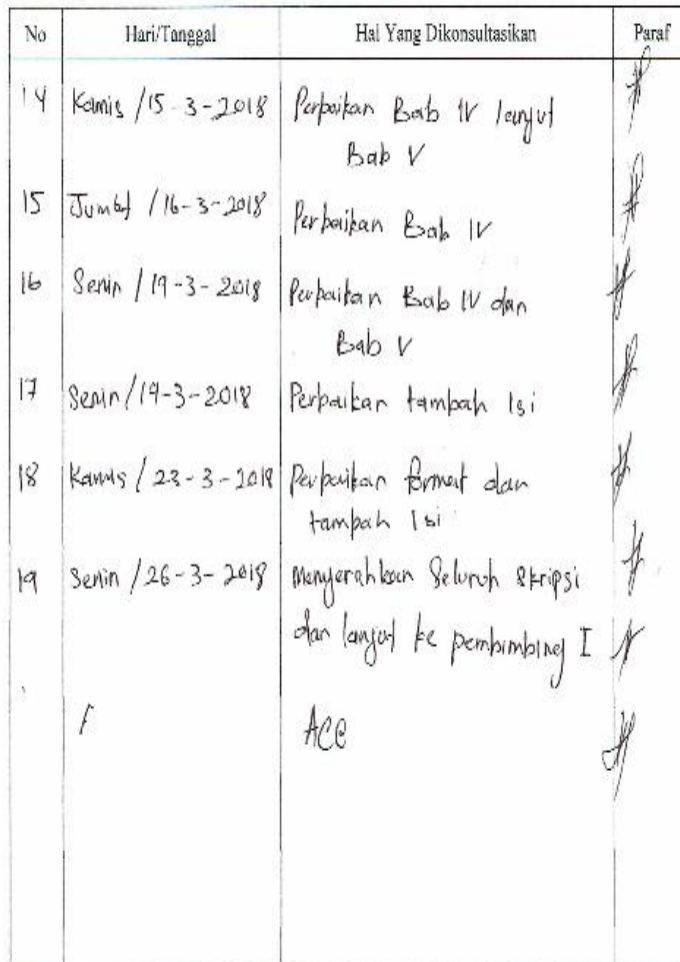 No Hari/Tanggal Hal Yang Dikonsultasikan Paraf
14 Kamis / 15-3-2018 Perbaikan Bab IV lanjut
Bab V
15 Jumat / 16-3-2018 Perbaikan Bab IV
16 Senin / 19-3-2018 Perbaikan Bab IV dan
Bab V
17 Senin / 19-3-2018 Perbaikan tambah Isi
18 Kamis / 23-3-2018 Perbaikan format dan
tambah Isi
19 Senin / 26-3-2018 Menyerahkan Seluruh Skripsi
dan lanjut ke pembimbing I
ACC